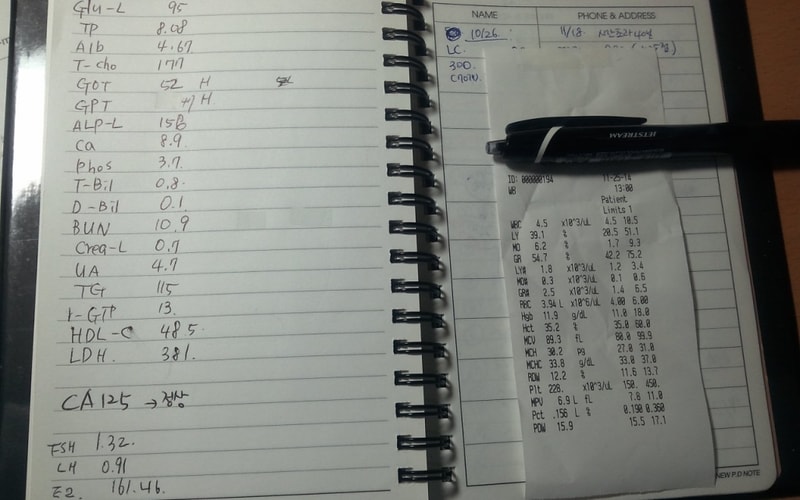 Glu-L 95
TP 8.08
Alb 4.67
T-cho 177
GOT 52 H
GPT 47 H
ALP-L 158
Ca 8.9
Phos 3.7
T-Bil 0.8
D-Bil 0.1
BUN 10.9
Crea-L 0.7
UA 4.7
TG 115
r-GTP 13.
HDL-C 48.5
LDH. 381.
CA125 → 정상
FSH 1.32.
LH 0.91
E2. 161.46.
NAME PHONE & ADDRESS
10/26. 11/18.
LC.
300.
JETSTREAM
ID: 000000194 11-25-14
WB 13:00
Patient
Limits 1
WBC 4.5 x10^3/uL 4.5 10.5
LY 39.1 % 20.5 51.1
MO 6.2 % 1.7 9.3
GR 54.7 % 42.2 75.2
LY# 1.8 x10^3/uL 1.2 3.4
MO# 0.3 x10^3/uL 0.1 0.6
GR# 2.5 x10^3/uL 1.4 6.5
RBC 3.94 L x10^6/uL 4.00 6.00
Hgb 11.9 g/dL 11.0 18.0
Hct 35.2 % 35.0 60.0
MCV 89.3 fL 80.0 99.9
MCH 30.2 pg 27.0 31.0
MCHC 33.8 g/dL 33.0 37.0
RDW 12.2 % 11.6 13.7
Plt 228. x10^3/uL 150. 450.
MPV 6.9 L fL 7.8 11.0
Pct .156 L % 0.190 0.360
PDW 15.9 15.5 17.1
NEW P.D NOTE